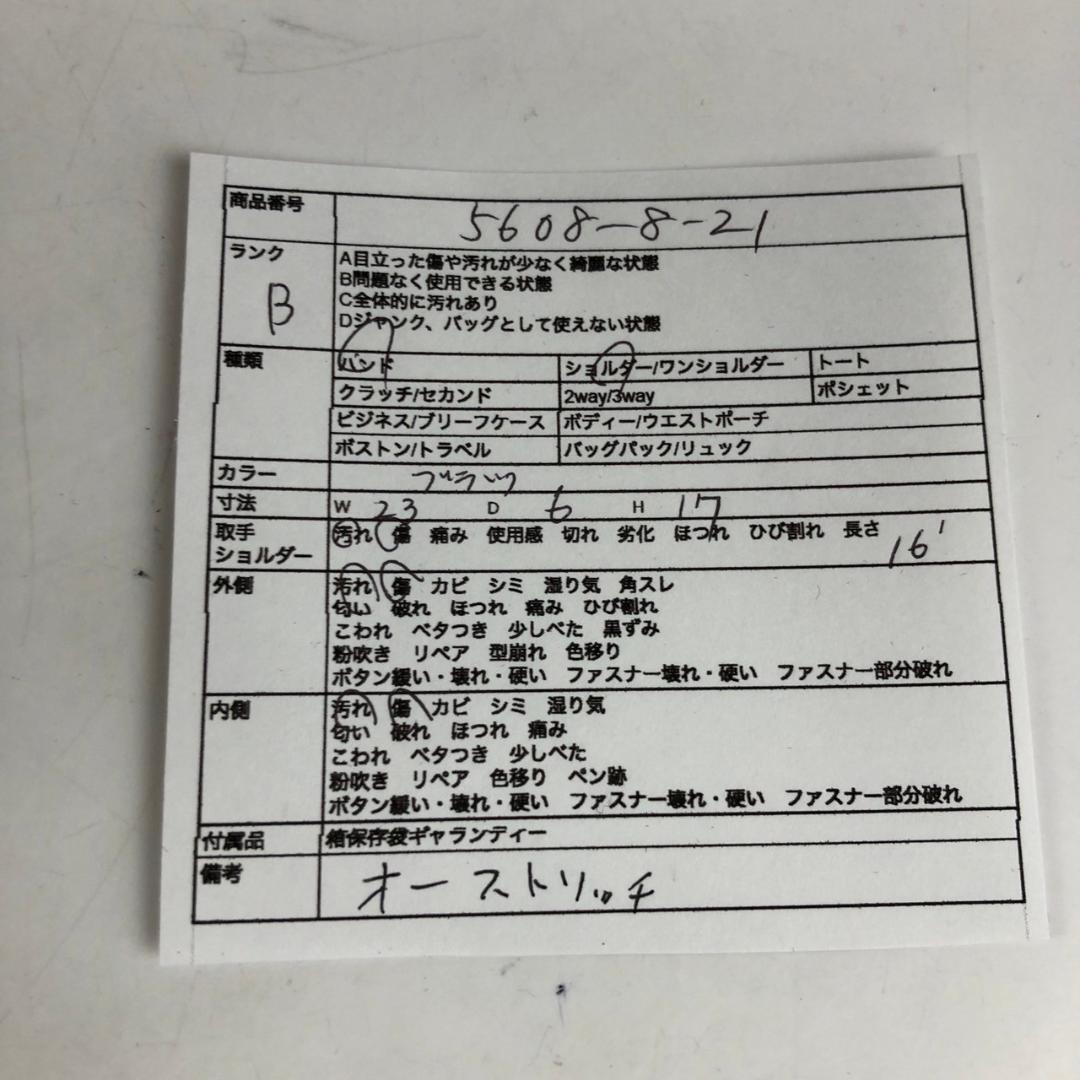 商品番号 5608-8-21
ランク B
A目立った傷や汚れが少なく綺麗な状態
B問題なく使用できる状態
C全体的に汚れあり
Dジャンク、バッグとして使えない状態
種類 ハンド ショルダー/ワンショルダー トート
クラッチ/セカンド 2way/3way ポシェット
ビジネス/ブリーフケース ボディー/ウエストポーチ
ボストン/トラベル バッグパック/リュック
カラー ブラック
寸法 W 23 D 6 H 17
取手 汚れ 傷 痛み 使用感 切れ 劣化 ほつれ ひび割れ 長さ 16
ショルダー
外側 汚れ 傷 カビ シミ 湿り気 角スレ
匂い 破れ ほつれ 痛み ひび割れ
こわれ ベタつき 少しべた 黒ずみ
粉吹き リペア 型崩れ 色移り
ボタン緩い・壊れ・硬い ファスナー壊れ・硬い ファスナー部分破れ
内側 汚れ 傷 カビ シミ 湿り気
匂い 破れ ほつれ 痛み
こわれ ベタつき 少しべた
粉吹き リペア 色移り ペン跡
ボタン緩い・壊れ・硬い ファスナー壊れ・硬い ファスナー部分破れ
付属品 箱保存袋ギャランティー
備考 オーストリッチ